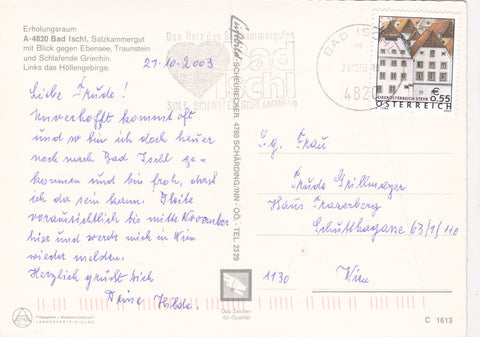 Erholungsraum
A-4820 Bad Ischl, Salzkammergut
mit Blick gegen Ebensee, Traunstein
und Schlafende Griechin.
Links das Höllengebirge.
21.10.2003
Liebe Trude!
Unverhofft kommt oft
und so bin ich doch heuer
noch nach Bad Ischl ge-
kommen und bin froh, dass
ich da sein kann. Bleibe
voraussichtlich bis mitte November
hier und werde mich in Wien
wieder melden.
Herzlich grüßt dich
Deine Hilde.
Das Herz des Salzkammergutes
Bad
Ischl
BAD ISCHL
4820
€ 0,55
ÖSTERREICH
Luftbild SCHERRECKER, 4780 SCHÄRDING/INN - OÖ - TEL. 2329
S.g. Frau
Trude Grillmayer
Haus Frazerberg
Schuttkagasse 63/1/110
1130 Wien
Das Zeichen
für Qualität
C 1613